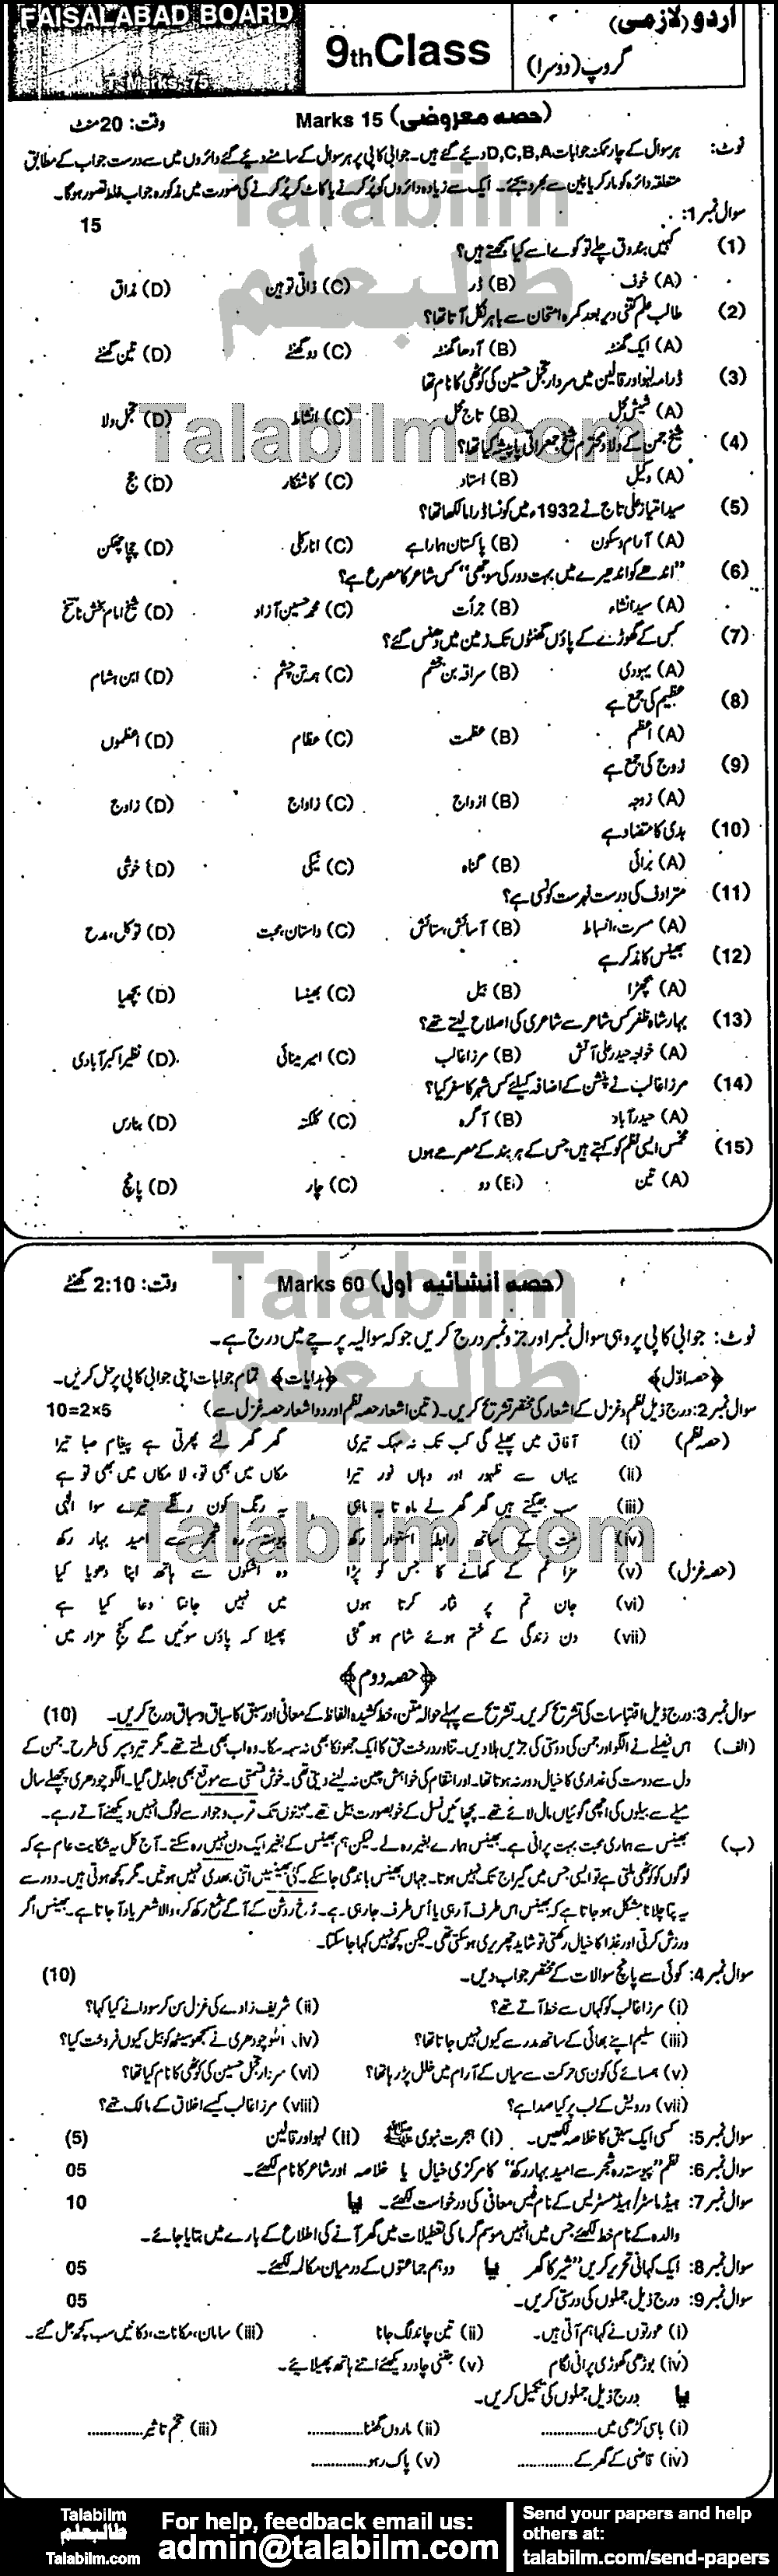 FAISALABAD BOARD
T-Marks:75
9thClass
اردو (لازمی)
گروپ (دوسرا)
(حصہ معروضی) Marks 15 وقت: 20 منٹ
نوٹ: ہر سوال کے چار ممکنہ جوابات D,C,B,A دیے گئے ہیں۔ جوابی کاپی پر ہر سوال کے سامنے دیے گئے دائروں میں سے درست جواب کے مطابق
متعلقہ دائرہ کو مارکر یا پین سے بھر دیجئے۔ ایک سے زیادہ دائروں کو پُر کرنے یا کاٹ کر پُر کرنے کی صورت میں مذکورہ جواب غلط تصور ہوگا۔
سوال نمبر1: 15
(1) کہیں بندوق چلے تو کوے اسے کیا سمجھتے ہیں؟
(A) خوف (B) ڈر (C) ذاتی توہین (D) مذاق
(2) طالب علم کتنی دیر بعد کمرہ امتحان سے باہر نکل آتا تھا؟
(A) ایک گھنٹہ (B) آدھا گھنٹہ (C) دو گھنٹے (D) تین گھنٹے
(3) ڈرامہ لہو اور قالین میں سردار تجمل حسین کی کوٹھی کا نام تھا
(A) شیش محل (B) تاج محل (C) النشاط (D) تجمل ولا
(4) شیخ جمن کے والد محترم شیخ جمعراتی کا پیشہ کیا تھا؟
(A) وکیل (B) استاد (C) کاشتکار (D) جج
(5) سید امتیاز علی تاج نے 1932ء میں کونسا ڈراما لکھا تھا؟
(A) آرام و سکون (B) پاکستان ہمارا ہے (C) انارکلی (D) چچا چھکن
(6) "اندھے کو اندھیرے میں بہت دور کی سوجھی" کس شاعر کا مصرع ہے؟
(A) سید انشاء (B) جرأت (C) محمد حسین آزاد (D) شیخ امام بخش ناسخ
(7) کس کے گھوڑے کے پاؤں گھٹنوں تک زمین میں دھنس گئے؟
(A) یہودی (B) سراقہ بن جشم (C) ہمہ تن چشم (D) ابن ہشام
(8) عظیم کی جمع ہے
(A) اعظم (B) عظمت (C) عظام (D) اعظموں
(9) زوج کی جمع ہے
(A) زوجہ (B) ازواج (C) زاواج (D) زاوج
(10) بدی کا متضاد ہے
(A) برائی (B) گناہ (C) نیکی (D) خوشی
(11) مترادف کی درست فہرست کونسی ہے؟
(A) مسرت، انبساط (B) آسائش، ستائش (C) داستان، محبت (D) توکل، مدح
(12) بھینس کا مذکر ہے
(A) بچھڑا (B) بیل (C) بھینسا (D) بچھیا
(13) بہادر شاہ ظفر کس شاعر سے شاعری کی اصلاح لیتے تھے؟
(A) خواجہ حیدر علی آتش (B) مرزا غالب (C) امیر مینائی (D) نظیر اکبر آبادی
(14) مرزا غالب نے پنشن کے اضافہ کیلئے کس شہر کا سفر کیا؟
(A) حیدر آباد (B) آگرہ (C) کلکتہ (D) بنارس
(15) مخمس ایسی نظم کو کہتے ہیں جس کے ہر بند کے مصرعے ہوں
(A) تین (B) دو (C) چار (D) پانچ
(حصہ انشائیہ اول) Marks 60 وقت: 2:10 گھنٹے
نوٹ: جوابی کاپی پر وہی سوال نمبر اور جز و نمبر درج کریں جو کہ سوالیہ پرچے میں درج ہے۔
﴿حصہ اوّل﴾ ﴿ہدایات﴾ تمام جوابات اپنی جوابی کاپی پر حل کریں۔
سوال نمبر2: درج ذیل نظم و غزل کے اشعار کی مختصر تشریح کریں۔ (تین اشعار حصہ نظم اور دو اشعار حصہ غزل سے) 10=2×5
(حصہ نظم) (i) آفاق میں پھیلے گی کب تک نہ مہک تیری گھر گھر لئے پھرتی ہے پیغام صبا تیرا
(ii) یہاں سے ظہور اور وہاں نور تیرا مکاں میں بھی تو، لا مکاں میں بھی تو ہے
(iii) سب بھیگتے ہیں گھر گھر لے ماہ تا بہ ماہی یہ رنگ کون رنگے تیرے سوا الٰہی
(iv) ملت کے ساتھ رابطہ استوار رکھ پیوستہ رہ شجر سے امید بہار رکھ
(حصہ غزل) (v) مزا غم کے کھانے کا جس کو پڑا وہ اشکوں سے ہاتھ اپنا دھویا کیا
(vi) جان تم پر نثار کرتا ہوں میں نہیں جانتا دعا کیا ہے
(vii) دن زندگی کے ختم ہوئے شام ہو گئی پھیلا کے پاؤں سوئیں گے کنج مزار میں
﴿حصہ دوم﴾
سوال نمبر3: درج ذیل اقتباسات کی تشریح کریں۔ تشریح سے پہلے حوالہ متن، خط کشیدہ الفاظ کے معانی اور سبق کا سیاق و سباق درج کریں۔ (10)
(الف) اس فیصلے نے الگو اور جمن کی دوستی کی جڑیں ہلا دیں۔ تناور درخت حق کا ایک جھونکا بھی نہ سہہ سکا۔ وہ اب بھی ملتے تھے۔ مگر تیر و سپر کی طرح۔ جمن کے
دل سے دوست کی غداری کا خیال دور نہ ہوتا تھا۔ اور انتقام کی خواہش چین نہ لینے دیتی تھی۔ خوش قسمتی سے موقع بھی جلد مل گیا۔ الگو چودھری پچھلے سال
میلے سے بیلوں کی اچھی گوئیاں مال لائے تھے۔ پچھائیں نسل کے خوبصورت بیل تھے۔ مہینوں تک قرب و جوار سے لوگ انہیں دیکھنے آتے رہے۔
(ب) بھینس سے ہماری محبت بہت پرانی ہے۔ بھینس ہمارے بغیر رہ لے۔ لیکن ہم بھینس کے بغیر ایک دن نہیں رہ سکتے۔ آج کل یہ شکایت عام ہے کہ
لوگوں کو کوٹھی ملتی ہے تو ایسی جس میں گیراج تک نہیں ہوتا۔ جہاں بھینس باندھی جا سکے۔ کئی بھینسیں اتنی بھدی نہیں ہوتیں۔ مگر کچھ ہوتی ہیں۔ دور سے
یہ پتا چلانا مشکل ہو جاتا ہے کہ بھینس اس طرف آ رہی یا اُس طرف جا رہی ہے۔ رُخ روشن کے آگے شمع رکھ کر، والا شعر یاد آ جاتا ہے۔ بھینس اگر
ورزش کرتی اور غذا کا خیال رکھتی تو شاید چھریری ہو سکتی تھی۔ لیکن کچھ نہیں کہا جا سکتا۔
سوال نمبر4: کوئی سے پانچ سوالات کے مختصر جواب دیں۔ (10)
(i) مرزا غالب کو کہاں سے خط آتے تھے؟ (ii) شریف زادے کی غزل سن کر سودا نے کیا کہا؟
(iii) سلیم اپنے بھائی کے ساتھ مدرسے کیوں نہیں جاتا تھا؟ (iv) الگو چودھری نے سمجھو سیٹھ کو بیل کیوں فروخت کیا؟
(v) ہمسائے کی کون سی حرکت سے میاں کے آرام میں خلل پڑ رہا تھا؟ (vi) سردار تجمل حسین کی کوٹھی کا نام کیا تھا؟
(vii) درویش کے لب پر کیا صدا ہے؟ (viii) مرزا غالب کیسے اخلاق کے مالک تھے؟
سوال نمبر5: کسی ایک سبق کا خلاصہ لکھیں۔ (i) ہجرت نبوی ﷺ (ii) لہو اور قالین (5)
سوال نمبر6: نظم "پیوستہ رہ شجر سے امید بہار رکھ" کا مرکزی خیال یا خلاصہ اور شاعر کا نام لکھئے۔ 05
سوال نمبر7: ہیڈ ماسٹر/ہیڈ مسٹریس کے نام فیس معافی کی درخواست لکھئے۔ یا 10
والدہ کے نام خط لکھئے جس میں انہیں موسم گرما کی تعطیلات میں گھر آنے کی اطلاع کے بارے میں بتایا جائے۔
سوال نمبر8: ایک کہانی تحریر کریں "شیر کا گھر یا دو ہم جماعتوں کے درمیان مکالمہ لکھئے۔ 05
سوال نمبر9: درج ذیل جملوں کی درستی کریں۔ 05
(i) عورتوں نے کہا ہم آتی ہیں۔ (ii) تین چاند لگ جانا (iii) سامان، مکانات، دکانیں سب کچھ جل گئے۔
(iv) بوڑھی گھوڑی پرانی لگام (v) جتنی چادر دیکھئے اتنے ہاتھ پھیلائیے۔
یا درج ذیل جملوں کی تکمیل کریں۔
(i) باسی کڑھی میں ............ (ii) ماروں گھٹنا ............ (iii) تخم تاثیر ............
(iv) قاضی کے گھر کے ............ (v) پاک رہو ............
Talabilm
طالبعلم
Talabilm.com
For help, feedback email us:
admin@talabilm.com
Send your papers and help
others at:
talabilm.com/send-papers